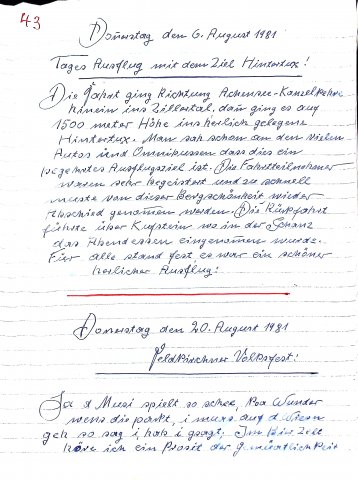 43
Donnerstag den 6. August 1981
Tages Ausflug mit dem Ziel Hintertux!
Die Fahrt ging Richtung Achensee-Kanzelkehre
hinein ins Zillertal, dann ging es auf
1500 meter Höhe ins herlich gelegene
Hintertux. Man sah schon an den vielen
Autos und Omnibussen dass dies ein
begehrtes Ausflugsziel ist. Die Fahrtteilnehmer
waren sehr begeistert und so schnell
musste von dieser Bergschönheit wieder
Abschied genommen werden. Die Rückfahrt
führte über Kufstein wo in der Schanz
das Abendessen eingenommen wurde.
Für alle stand fest, es war ein schöner
herlicher Ausflug!
Donnerstag den 20. August 1981
Feldkirchner Volksfest!
Ja d Musi spielt so schee, Koa Wunder
wens die packt, i muas auf d Wiesn
geh so sag i, hab i gsagt; Im Zelt
höre ich ein Prosit der Gemütlichkeit